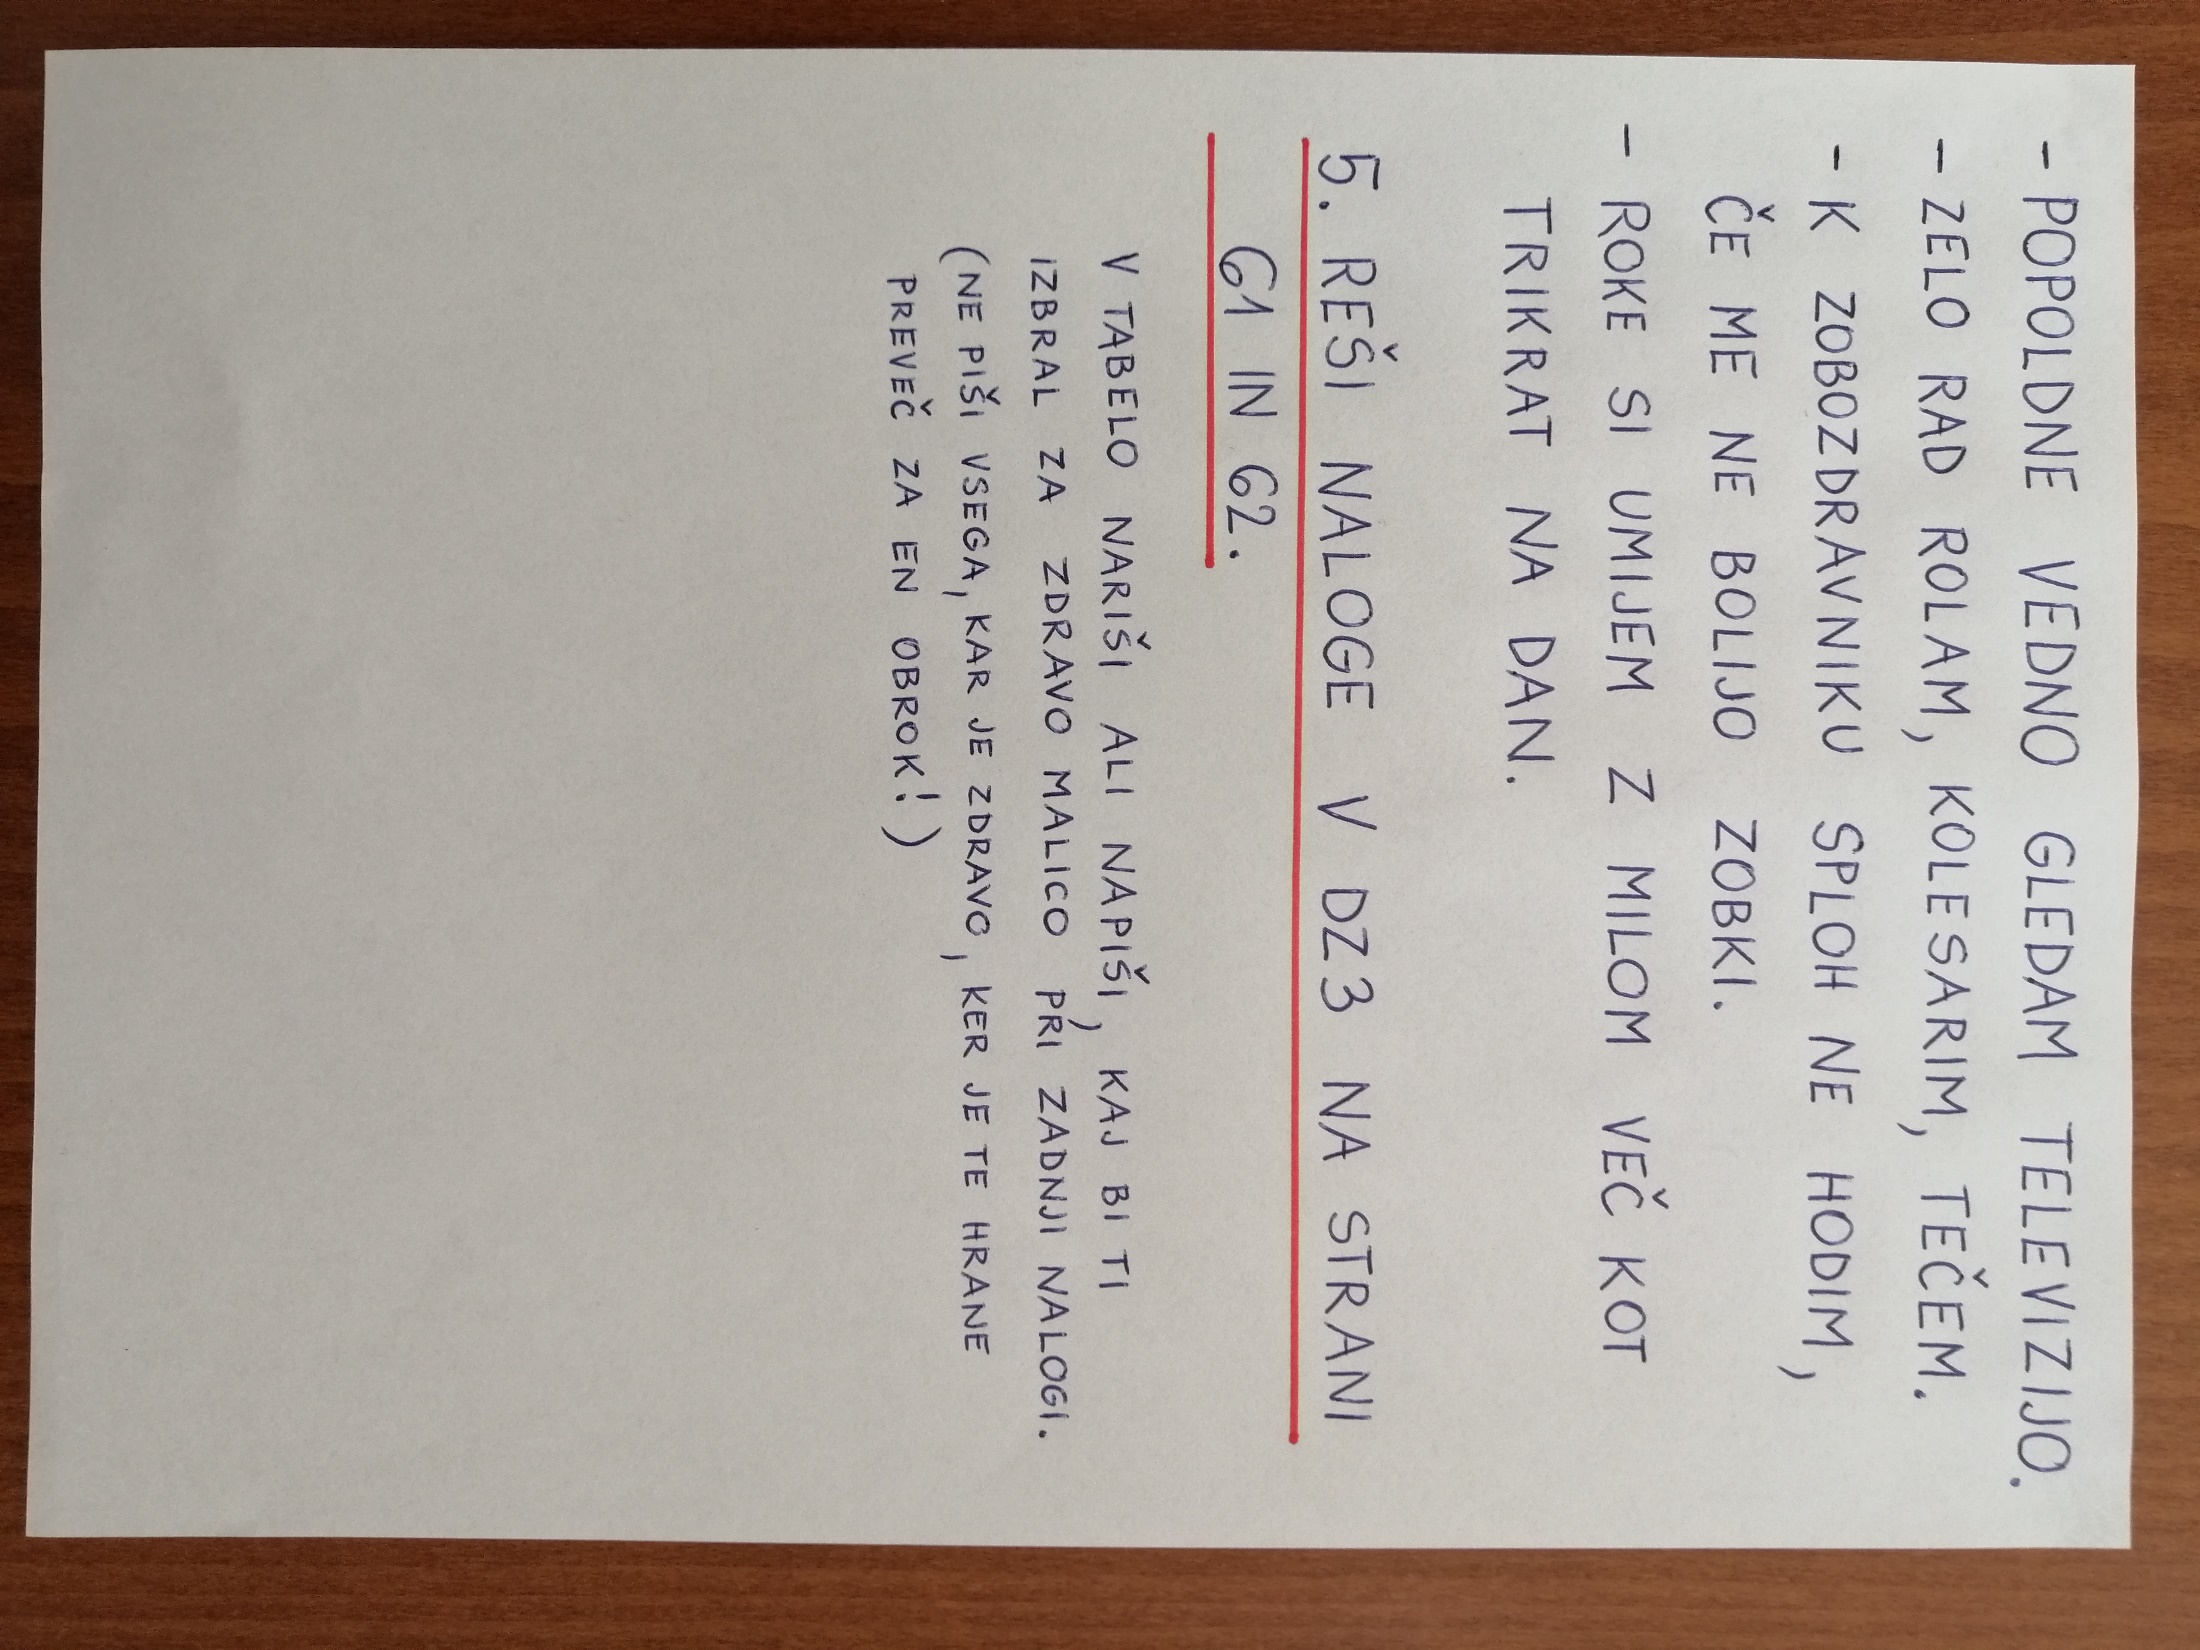 - POPOLDNE VEDNO GLEDAM TELEVIZIJO.
- ZELO RAD ROLAM, KOLESARIM, TEČEM.
- K ZOBOZDRAVNIKU SPLOH NE HODIM,
ČE ME NE BOLIJO ZOBKI.
- ROKE SI UMIJEM Z MILOM VEČ KOT
TRIKRAT NA DAN.
5. REŠI NALOGE V DZ3 NA STRANI
61 IN 62.
V TABELO NARIŠI ALI NAPIŠI, KAJ BI TI
IZBRAL ZA ZDRAVO MALICO PRI ZADNJI NALOGI.
(NE PIŠI VSEGA, KAR JE ZDRAVO, KER JE TE HRANE
PREVEČ ZA EN OBROK!)